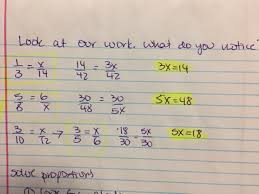 Look at our work. what do you notice
1/3 = x/14 14/42 = 3x/42 3x=14
5/8 = 6/x 30/48 = 30/5x 5x=48
3/10 = x/12 → 3/5 = x/6 18/30 = 5x/30 5x=18
solve proportions